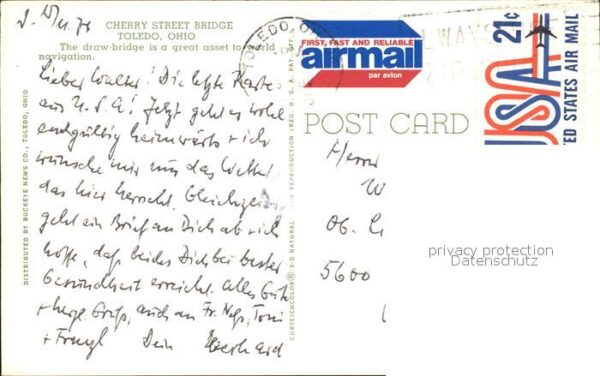 CHERRY STREET BRIDGE
TOLEDO, OHIO
The draw-bridge is a great asset to world
navigation.
Lieber Walter! Die letzte Karte
aus U.S.A! Jetzt geht es wohl
endgültig heimwärts + ich
wünsche mir nur das Wetter,
das hier herrscht. Gleichzeitig
geht ein Brief an Dich ab + ich
hoffe, daß beides Dich bei bester
Gesundheit erreicht. Alles Gute
+ herzl. Grüße, auch an Fr. Tom
+ Dein Eberhard
DISTRIBUTED BY BUCKEYE NEWS CO., TOLEDO, OHIO
CURTEICHCOLOR® 3-D NATURAL REPRODUCTION (REG. U.S. PAT. OFF.)
TOLEDO, O
FIRST, FAST AND RELIABLE
airmail
par avion
ALWAYS
21c
USA
UNITED STATES AIR MAIL
POST CARD
Herrn
W
Ob. L
5600
privacy protection
Datenschutz